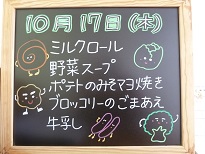 10月17日(木)
ミルクロール
野菜スープ
ポテトのみそマヨ焼き
ブロッコリーのごまあえ
牛乳